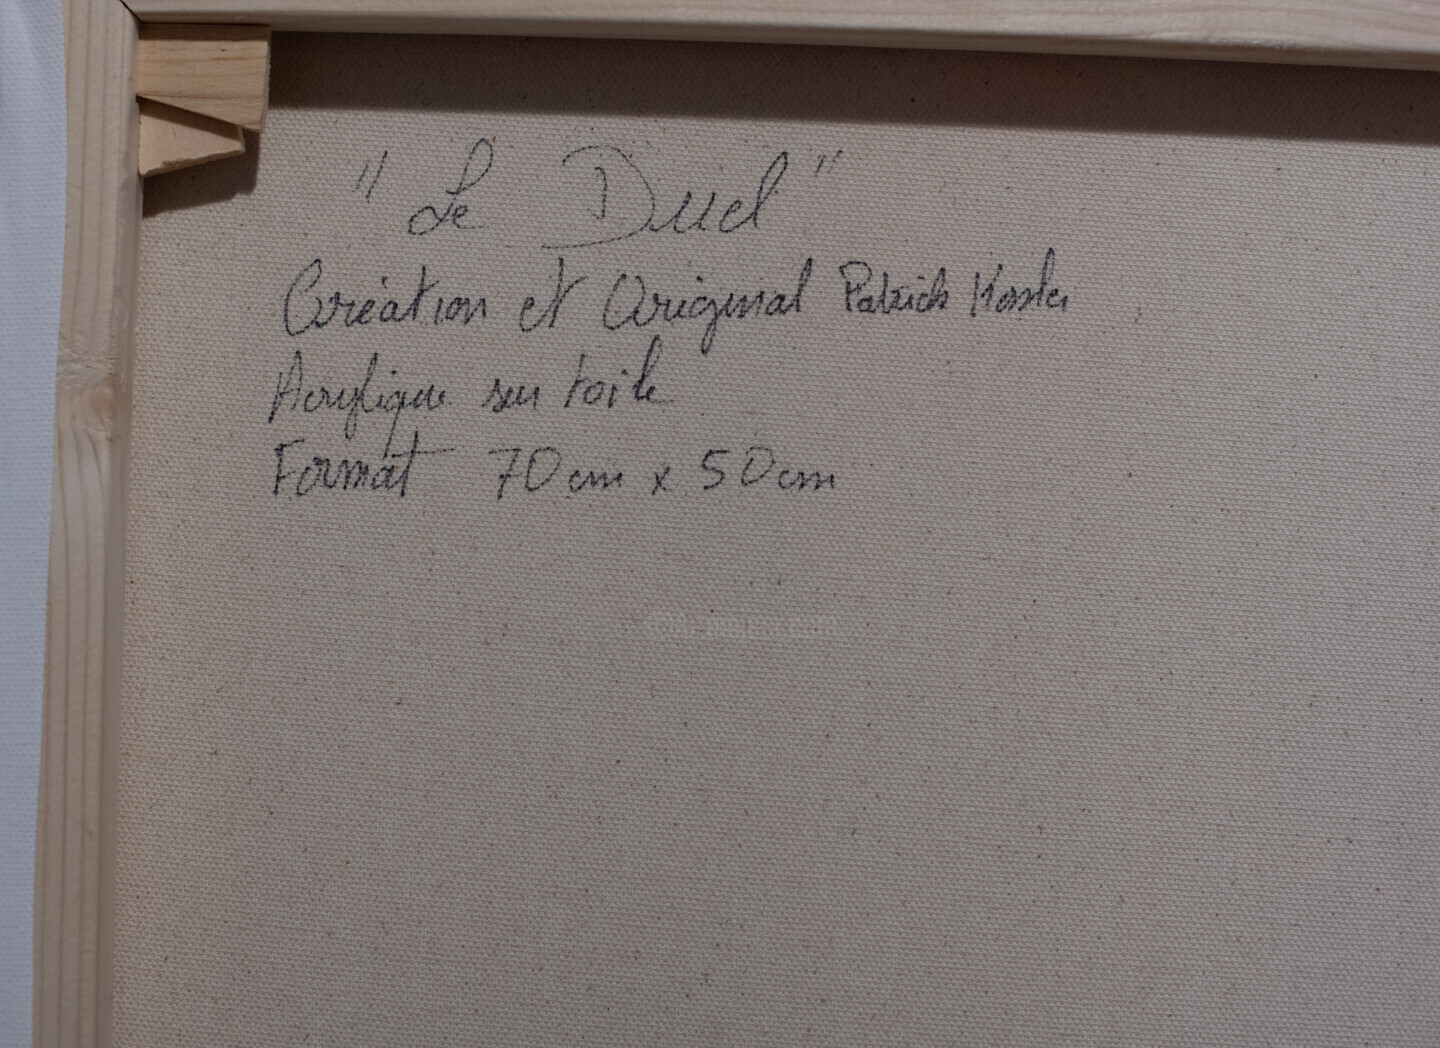 "Le Duel"
Création et Original Patrick
Acrylique sur toile
Format 70cm x 50cm